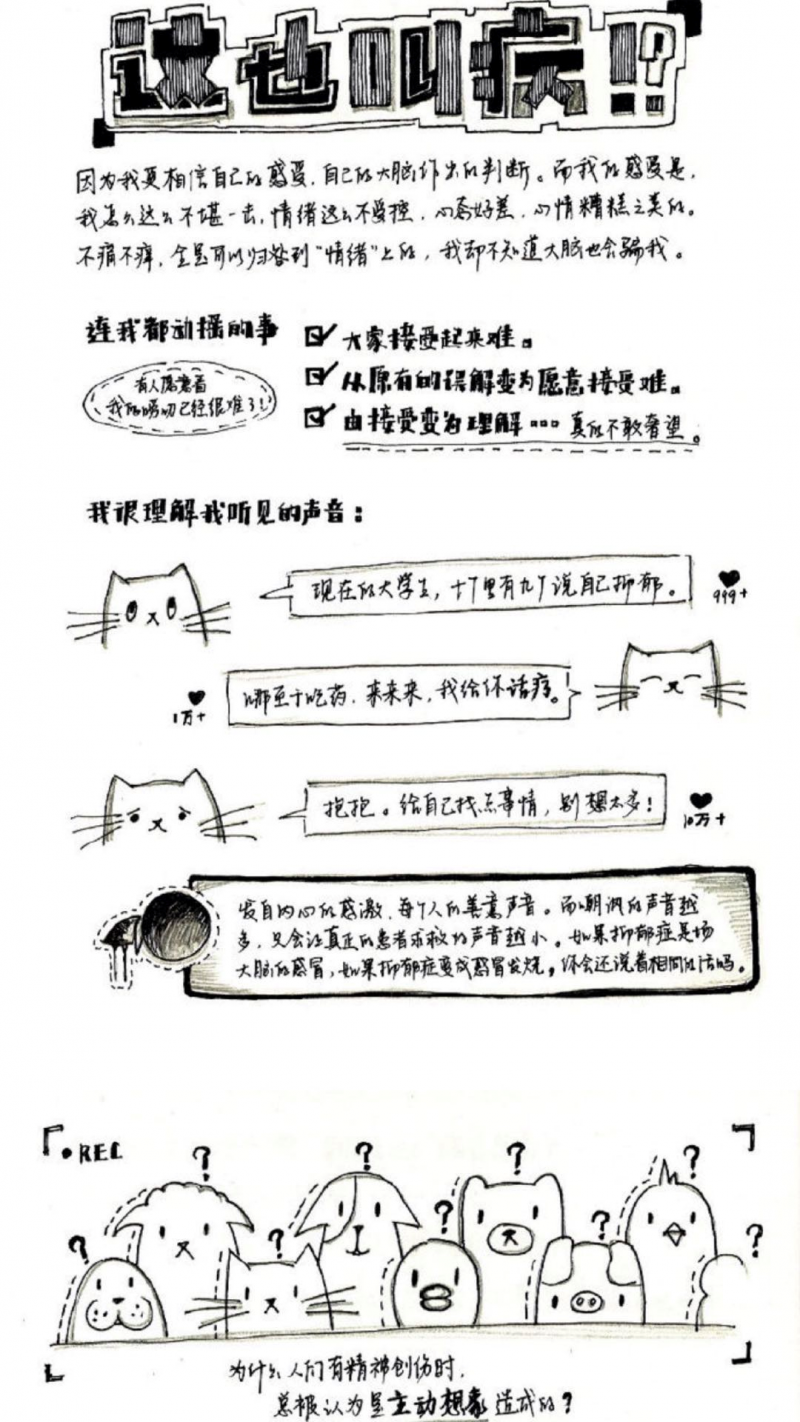 这也叫病!?
因为我更相信自己的感受,自己的大脑作出的判断。而我的感受是,
我怎么这么不堪一击,情绪这么不受控,心态好差,心情糟糕之类的。
不痛不痒,全是可以归咎到“情绪”上的,我却不知道大脑也会骗我。
连我都动摇的事
有人愿意看
我的唠叨已经很难了!
大家接受起来难。
从原有的误解变为愿意接受难。
由接受变为理解…真的不敢奢望。
我很理解我听见的声音:
现在的大学生,十个里有九个说自己抑郁。
999+
哪至于吃药,来来来,我给你话疗。
1万+
抱抱。给自己找点事情,别想太多!
10万+
发自内心的感激,每个人的善意声音。而嘲讽的声音越
多,只会让真正的患者求救的声音越小。如果抑郁症是场
大脑的感冒,如果抑郁症变成感冒发烧,你会还说着相同的话吗。
REC
? ? ? ? ? ? ? ? ?
为什么人们有精神创伤时,
总被认为是主动想象造成的?